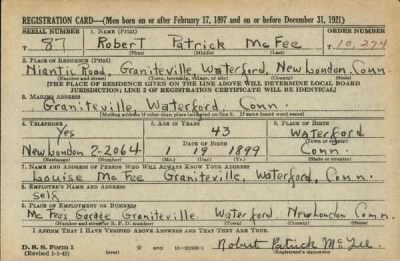 REGISTRATION CARD—(Men born on or after February 17, 1897 and on or before December 31, 1921)
SERIAL NUMBER 1. NAME (Print) ORDER NUMBER
T 87 Robert Patrick McFee T 10,274
(First) (Middle) (Last)
2. PLACE OF RESIDENCE (Print)
Niantic Road, Graniteville, Waterford, New London, Conn.
(Number and street) (Town, township, village, or city) (County) (State)
[THE PLACE OF RESIDENCE GIVEN ON THE LINE ABOVE WILL DETERMINE LOCAL BOARD
JURISDICTION; LINE 2 OF REGISTRATION CERTIFICATE WILL BE IDENTICAL]
3. MAILING ADDRESS
Graniteville, Waterford, Conn.
[Mailing address if other than place indicated on line 2. If same insert word same]
4. TELEPHONE 5. AGE IN YEARS 6. PLACE OF BIRTH
Yes 43 Waterford
DATE OF BIRTH (Town or county)
New London 2-2064 1 19 1899 Conn.
(Exchange) (Number) (Mo.) (Day) (Yr.) (State or country)
7. NAME AND ADDRESS OF PERSON WHO WILL ALWAYS KNOW YOUR ADDRESS
Louise McFee Graniteville, Waterford, Conn.
8. EMPLOYER'S NAME AND ADDRESS
Self
9. PLACE OF EMPLOYMENT OR BUSINESS
McFees Garage Graniteville Waterford New London Conn.
(Number and street or R. F. D. number) (Town) (County) (State)
I AFFIRM THAT I HAVE VERIFIED ABOVE ANSWERS AND THAT THEY ARE TRUE.
D. S. S. Form 1
(Revised 1-1-42) GPO Robert Patrick McFee
(Registrant's signature)